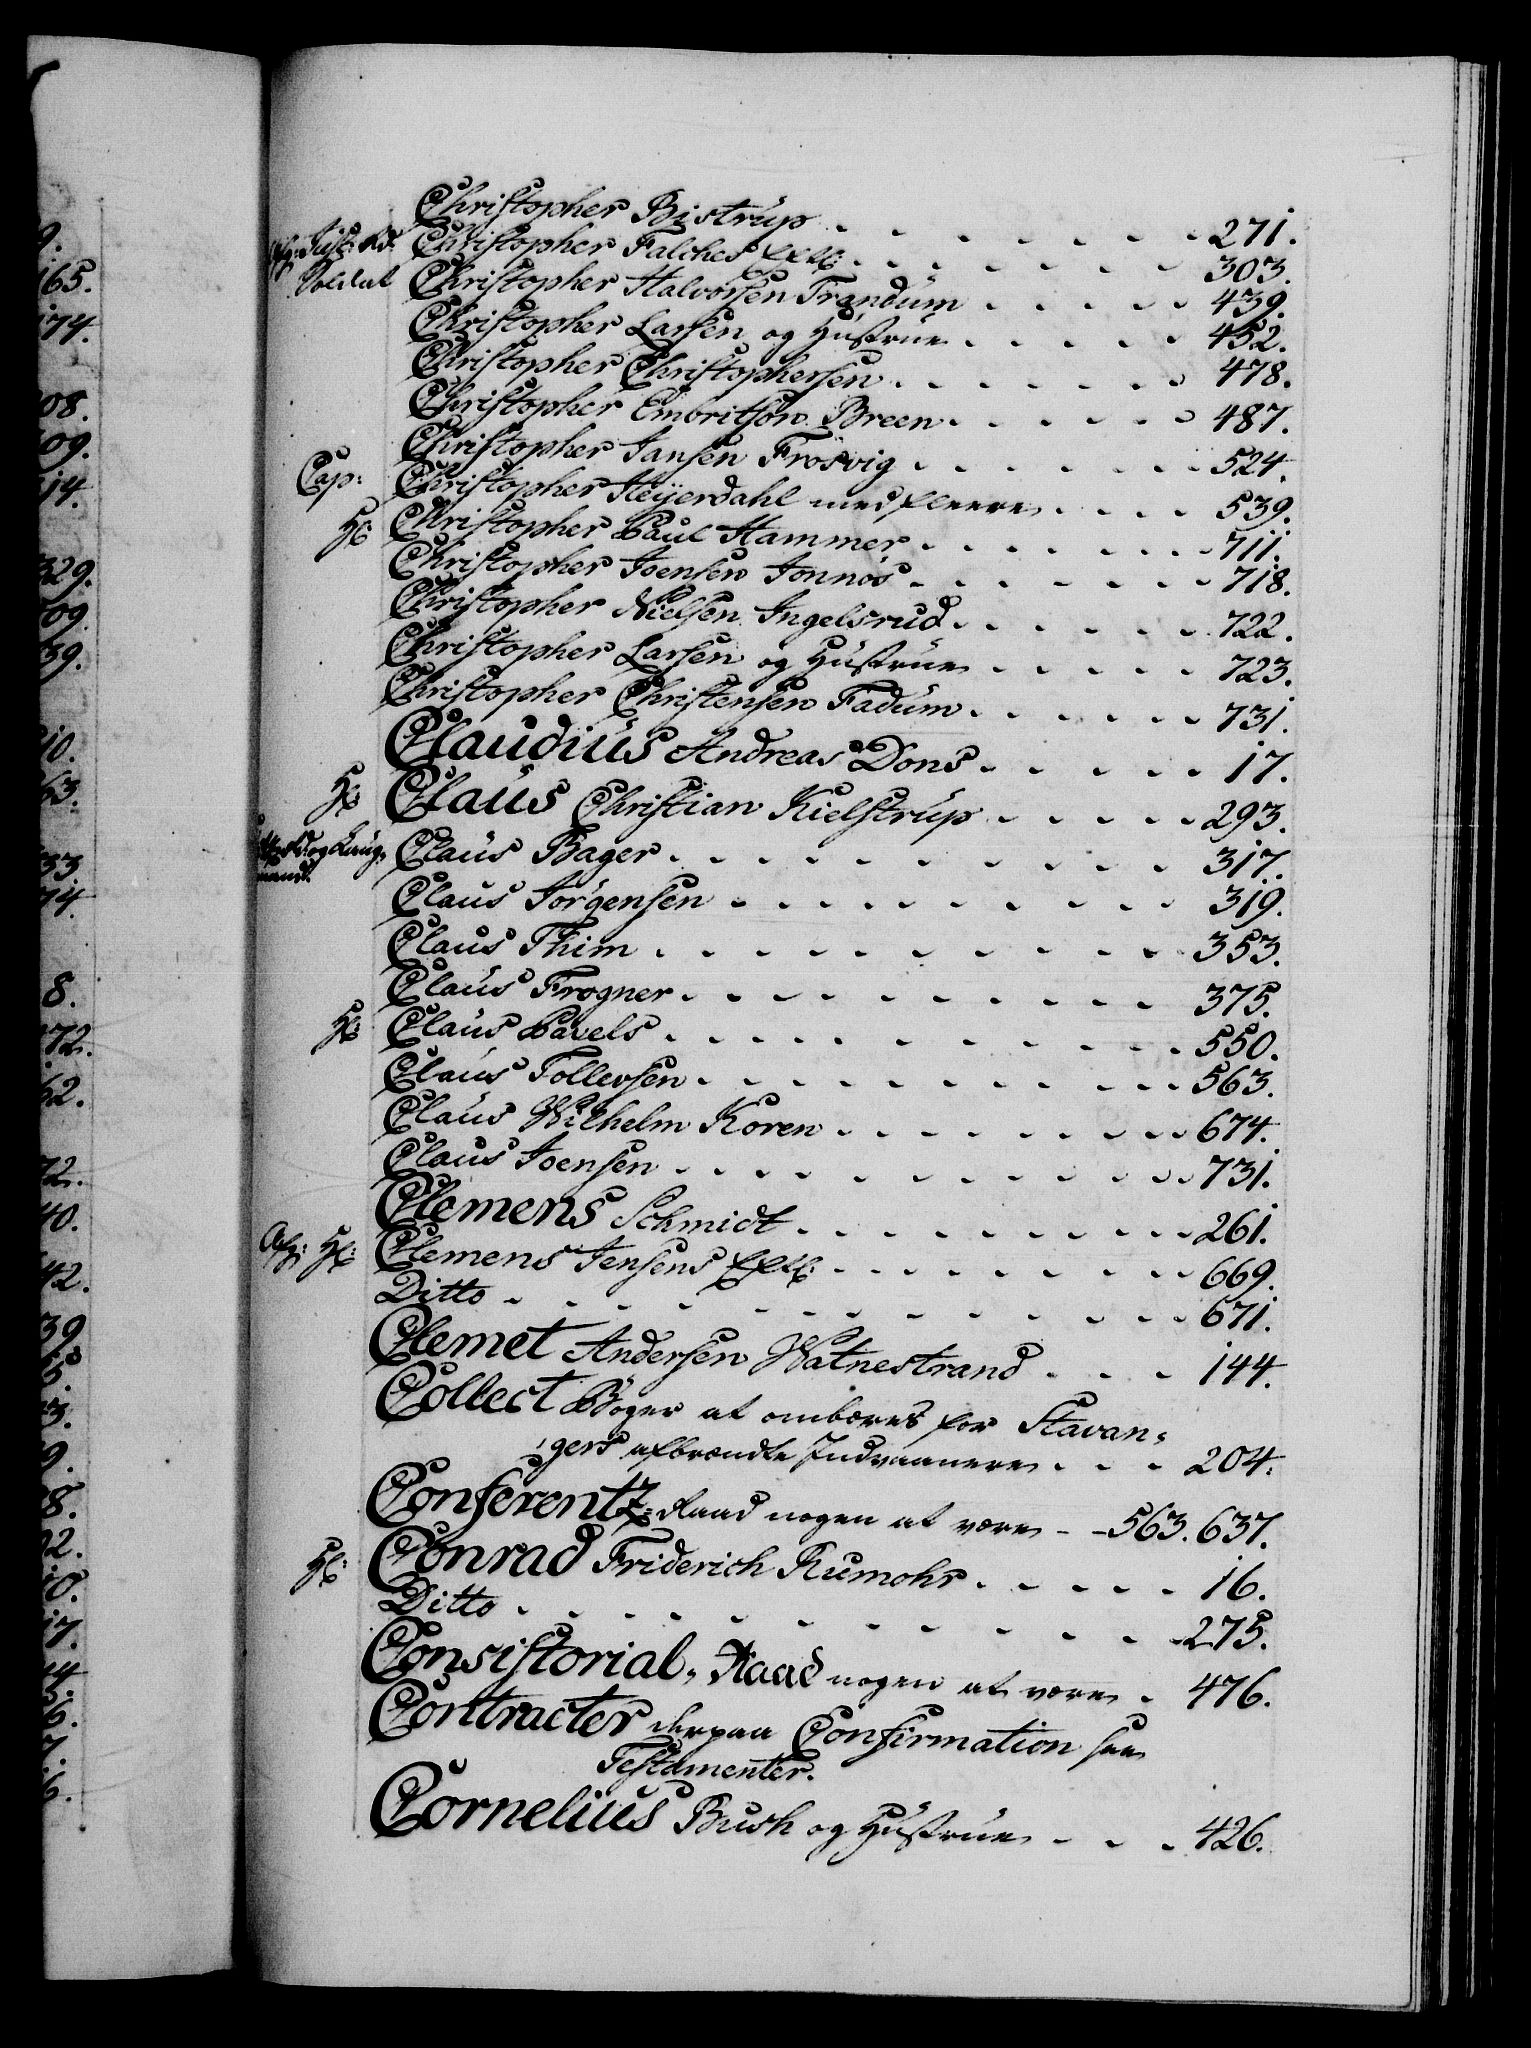 Christopher Bistrup 271.
Afg: Just: Rd: Christopher Falches 303.
Soldat Christopher Halvorsen Trandum 439.
Christopher Larsen og Hustrue 452.
Christopher Christophersen 478.
Christopher Embritsøn Breen 487.
Christopher Jansen Frosvig 524.
Cap: Christopher Heijerdahl med fleere 539.
Hr: Christopher Paul Hammer 711.
Christopher Joensen Jonnos 718.
Christopher Nielsen Ingelsrud 722.
Christopher Larsen og Hustrue 723.
Christopher Christensen Fadum 731.
Claudius Andreas Dons 17.
Hr: Claus Christian Kielstrup 293.
Rd: og Laug-
mand. Claus Bager 317.
Claus Jørgensen 319.
Claus Thim 353.
Claus Frogner 375.
Hr: Claus Pavels 550.
Claus Tollersen 563.
Claus Wilhelm Koren 674.
Claus Joensen 731.
Clemens Schmidt 261.
Afg: Hr: Clemens Jensens 669.
Ditto 671.
Clemet Andersen Watnestrand 144.
Collect Bøger at ombæres for Stavan-
gers afbrændte Indvaanere 204.
Conferentz-Raad nogen at være 563. 637.
Hr: Conrad Friderich Rumohr 16.
Ditto 275.
Consistorial-Raad nogen at være 476.
Contracter derpaa Confirmation see
Testamenter.
Cornelius Bush og Hustrue 426.
9.
165.
174.
08.
09.
14.
329.
09.
39.
10.
63.
33.
74.
8.
72.
62.
72.
40.
42.
39
5.
3.
9.
8.
2.
10.
17.
4.
6.
7.
6.